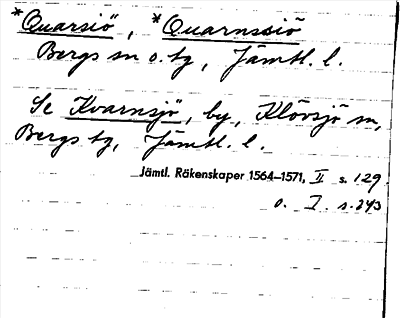 *Quarsiö, *Quarnssiö
Bergs sn o. tg, Jämtl. l.
Se Kvarnsjö, by, Klövsjö sn,
Bergs tg, Jämtl. l.
Jämtl. Räkenskaper 1564–1571, II s. 129
o. I s. 243